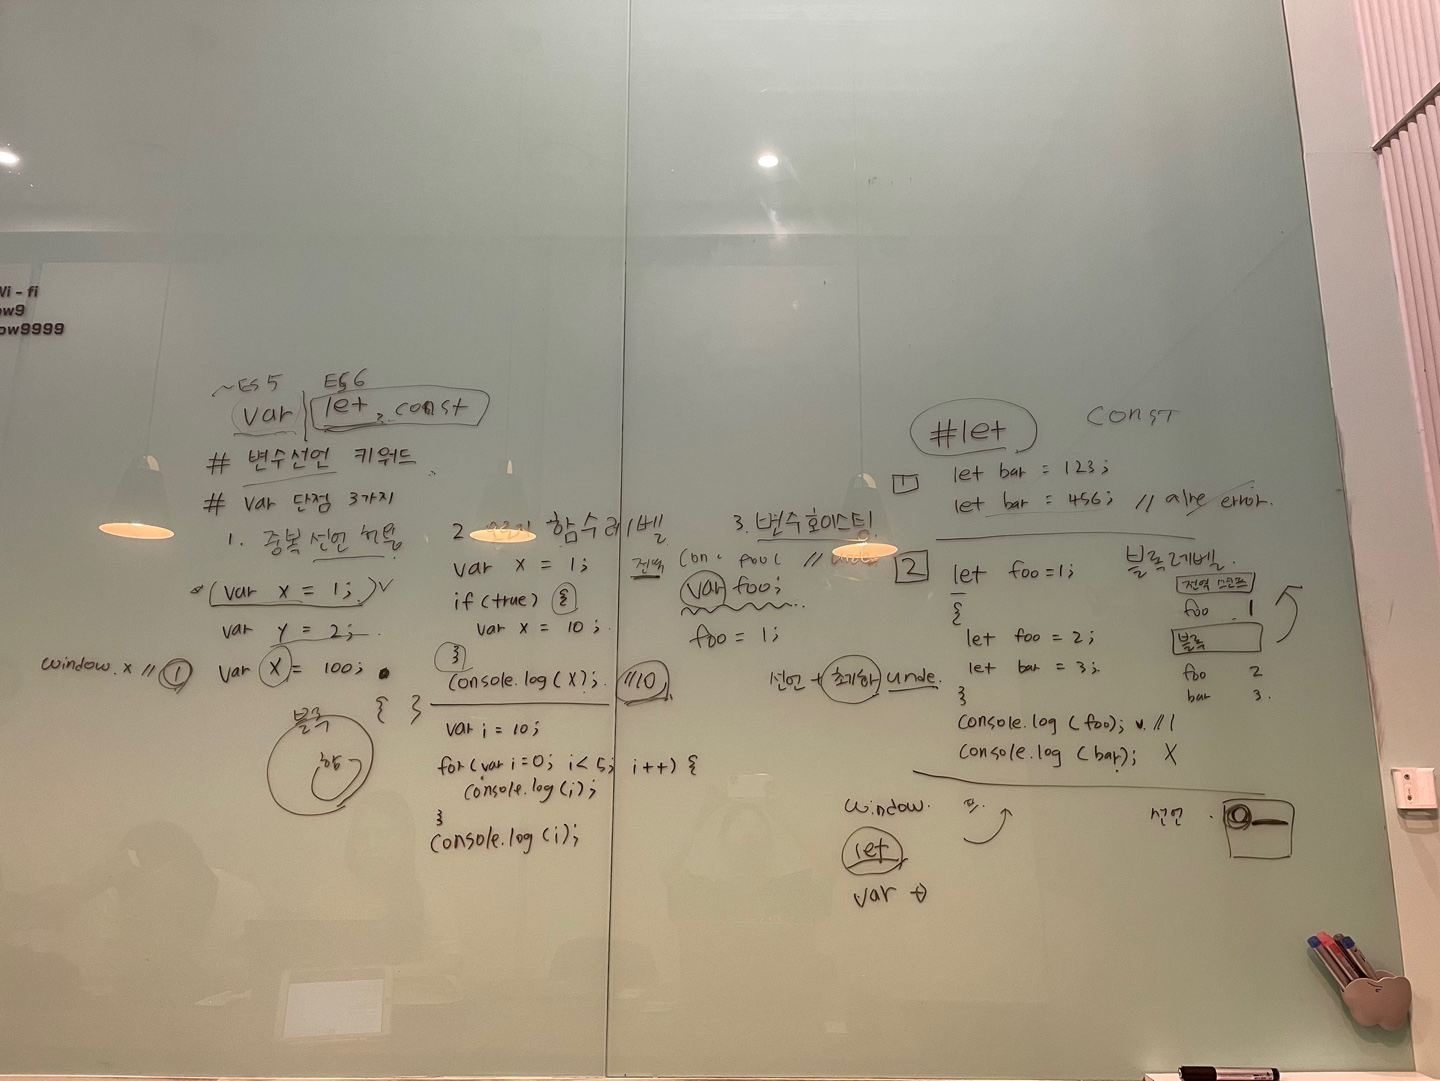 Wi - fi
ow9
ow9999
~ES5 ES6
var let, const
# 변수선언 키워드
# var 단점 3가지
1. 중복 선언 허용
(var x = 1;)
var y = 2;
window.x // 1 var x = 100;
블록 { }
함
2. 함수레벨
var x = 1; 전역
if (true) {
var x = 10;
}
console.log(x); //10
var i = 10;
for (var i=0; i<5; i++) {
console.log(i);
}
console.log(i);
3. 변수호이스팅
var foo;
foo = 1;
선언 + 초기화 unde.
#let const
1 let bar = 123;
let bar = 456; // error.
2 let foo=1; 블록레벨.
{
let foo = 2;
let bar = 3;
}
console.log (foo); //1
console.log (bar); X
전역 스코프
foo 1
블록
foo 2
bar 3.
window.
let
var
선언